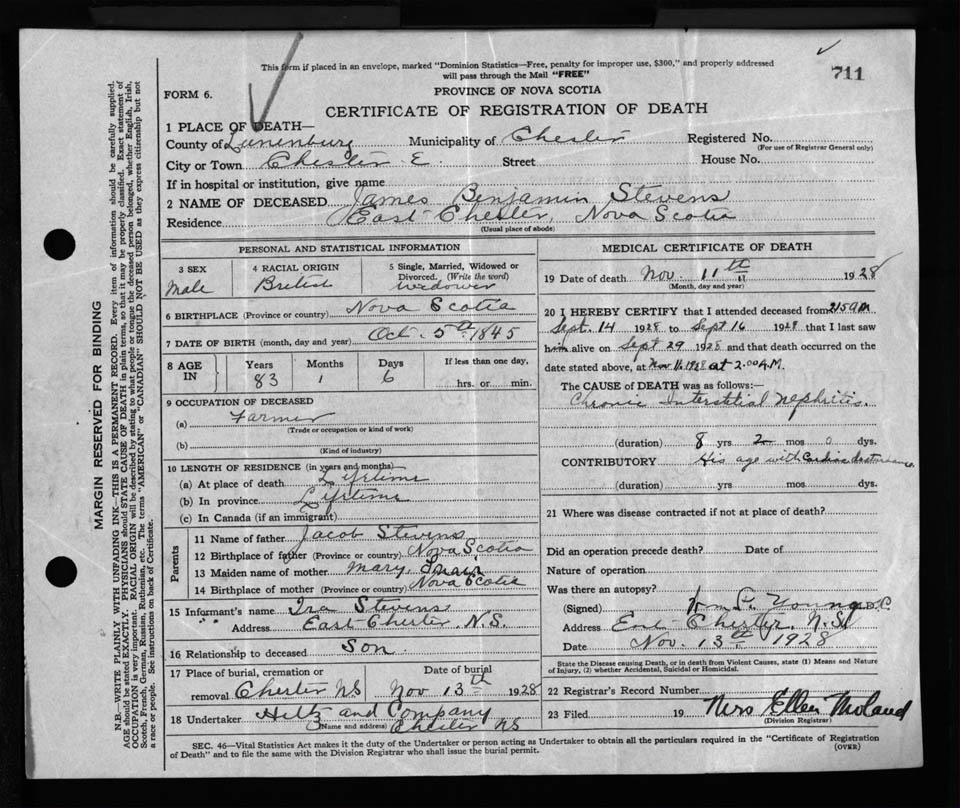 This form if placed in an envelope, marked "Dominion Statistics—Free, penalty for improper use, $300," and properly addressed
will pass through the Mail "FREE"
711
FORM 6.
PROVINCE OF NOVA SCOTIA
CERTIFICATE OF REGISTRATION OF DEATH
1 PLACE OF DEATH—
County of Lunenburg Municipality of Chester Registered No.
(For use of Registrar General only)
City or Town Chester E. Street House No.
If in hospital or institution, give name
2 NAME OF DECEASED James Benjamin Stevens
Residence East Chester, Nova Scotia
(Usual place of abode)
PERSONAL AND STATISTICAL INFORMATION
3 SEX 4 RACIAL ORIGIN 5 Single, Married, Widowed or
Divorced. (Write the word)
Male British widower
6 BIRTHPLACE (Province or country) Nova Scotia
7 DATE OF BIRTH (month, day and year) Oct. 5th 1845
8 AGE IN Years Months Days If less than one day,
83 1 6 hrs. or min.
9 OCCUPATION OF DECEASED
(a) Farmer
(Trade or occupation or kind of work)
(b)
(Kind of industry)
10 LENGTH OF RESIDENCE (in years and months)
(a) At place of death Lifetime
(b) In province Lifetime
(c) In Canada (if an immigrant)
Parents
11 Name of father Jacob Stevens
12 Birthplace of father (Province or country) Nova Scotia
13 Maiden name of mother Mary
14 Birthplace of mother (Province or country) Nova Scotia
15 Informant's name Ira Stevens
" " Address East Chester, N.S.
16 Relationship to deceased Son
17 Place of burial, cremation or Date of burial
removal Chester NS Nov 13th 1928
18 Undertaker Hiltz and Company
(Name and address) Chester NS
MEDICAL CERTIFICATE OF DEATH
19 Date of death Nov. 11th 1928
(Month, day and year)
20 I HEREBY CERTIFY that I attended deceased from
Sept. 14 1928 to Sept 16 1928 that I last saw
him alive on Sept 29 1928 and that death occurred on the
date stated above, at Nov 11, 1928 at 2.00 A.M.
The CAUSE of DEATH was as follows:—
Chronic Interstitial Nephritis.
(duration) 8 yrs 2 mos 0 dys.
CONTRIBUTORY His age with Cardiac disturbance.
(duration) yrs mos dys.
21 Where was disease contracted if not at place of death?
Did an operation precede death? Date of
Nature of operation
Was there an autopsy?
(Signed) Young
Address Chester, N.S.
Date Nov. 13th 1928
State the Disease causing Death, or in death from Violent Causes, state (1) Means and Nature
of Injury, (2) whether Accidental, Suicidal or Homicidal.
22 Registrar's Record Number
23 Filed 19 Mrs Ellen
(Division Registrar)
SEC. 46—Vital Statistics Act makes it the duty of the Undertaker or person acting as Undertaker to obtain all the particulars required in the "Certificate of Registration
of Death" and to file the same with the Division Registrar who shall issue the burial permit.
(OVER)
MARGIN RESERVED FOR BINDING
N.B.—WRITE PLAINLY WITH UNFADING INK—THIS IS A PERMANENT RECORD. Every item of information should be carefully supplied.
AGE should be stated EXACTLY. PHYSICIANS should STATE CAUSE OF DEATH in plain terms, so that it may be properly classified. Exact statement of
OCCUPATION is very important. RACIAL ORIGIN will be described by stating to what people or tongue the deceased person belonged, whether English, Irish,
Scotch, French, German, Russian, Ruthenian, etc. The terms "AMERICAN" or "CANADIAN" SHOULD NOT BE USED as they express citizenship but not
a race or people. See instructions on back of Certificate.